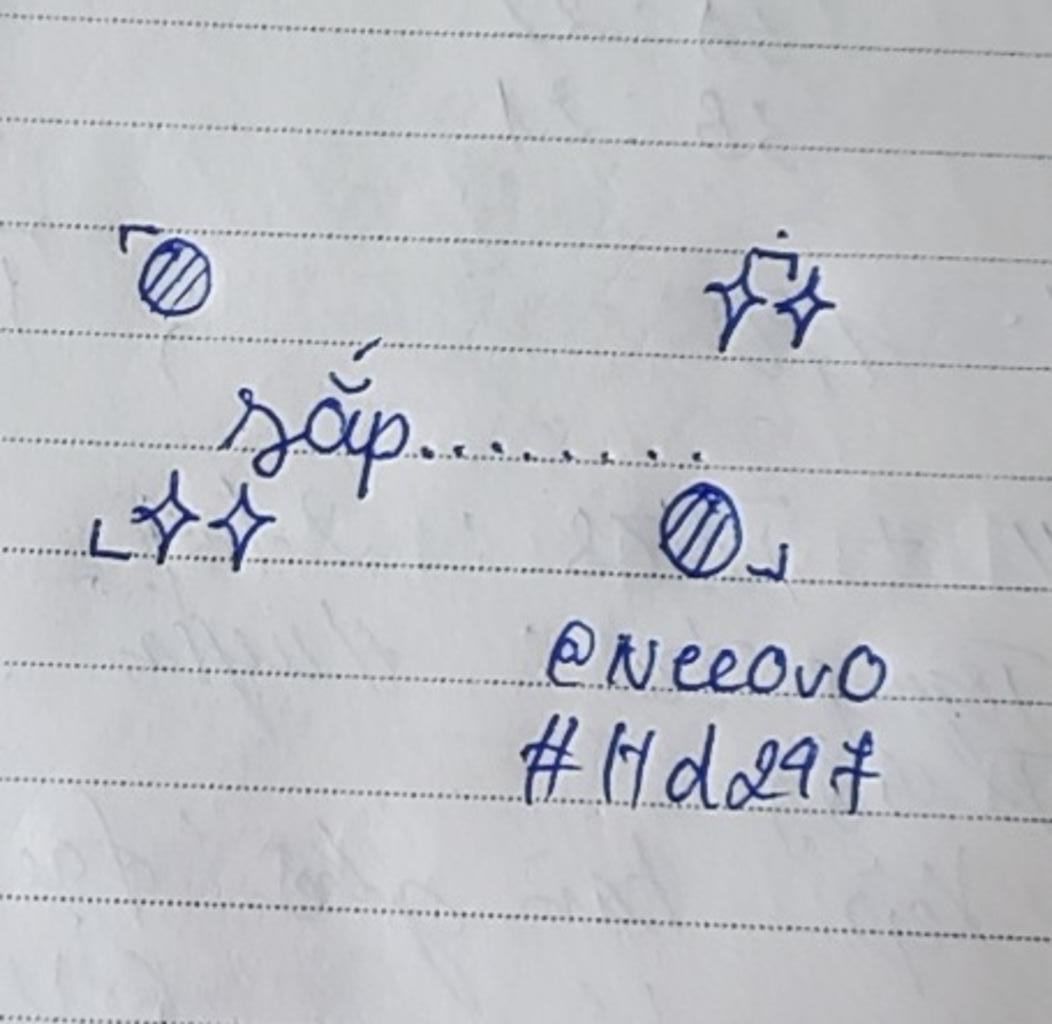 sắp........
@NeeOvO
#Hd297